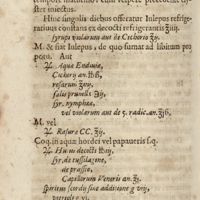 ster iniectus.
Hinc singulis diebus offeratur Iulepus refrige-
ratiuus constans ex decocti refrigerantis ℥iiij.
syrupi violarum aut de Cichorio ℥ij.
M. & fiat Iulepus, de quo sumat ad libitum pro
potu. Aut
℞ Aquæ Endiuiæ,
Cichorij an. ℔ß,
rosarum ℥iij.
salis prunellæ ℥ß,
syr. nymphææ,
vel violarum aut de 5. radic. an. ℥iß.
M. vel
℞ Rasuræ CC. ℥ij.
Coq. in aqua hordei vel papaueris s.q.
℞ Huius decocti ℔ij,
syr. de tussilagine,
de prassio,
Capillorum Veneris an. ℥j.
spiritus